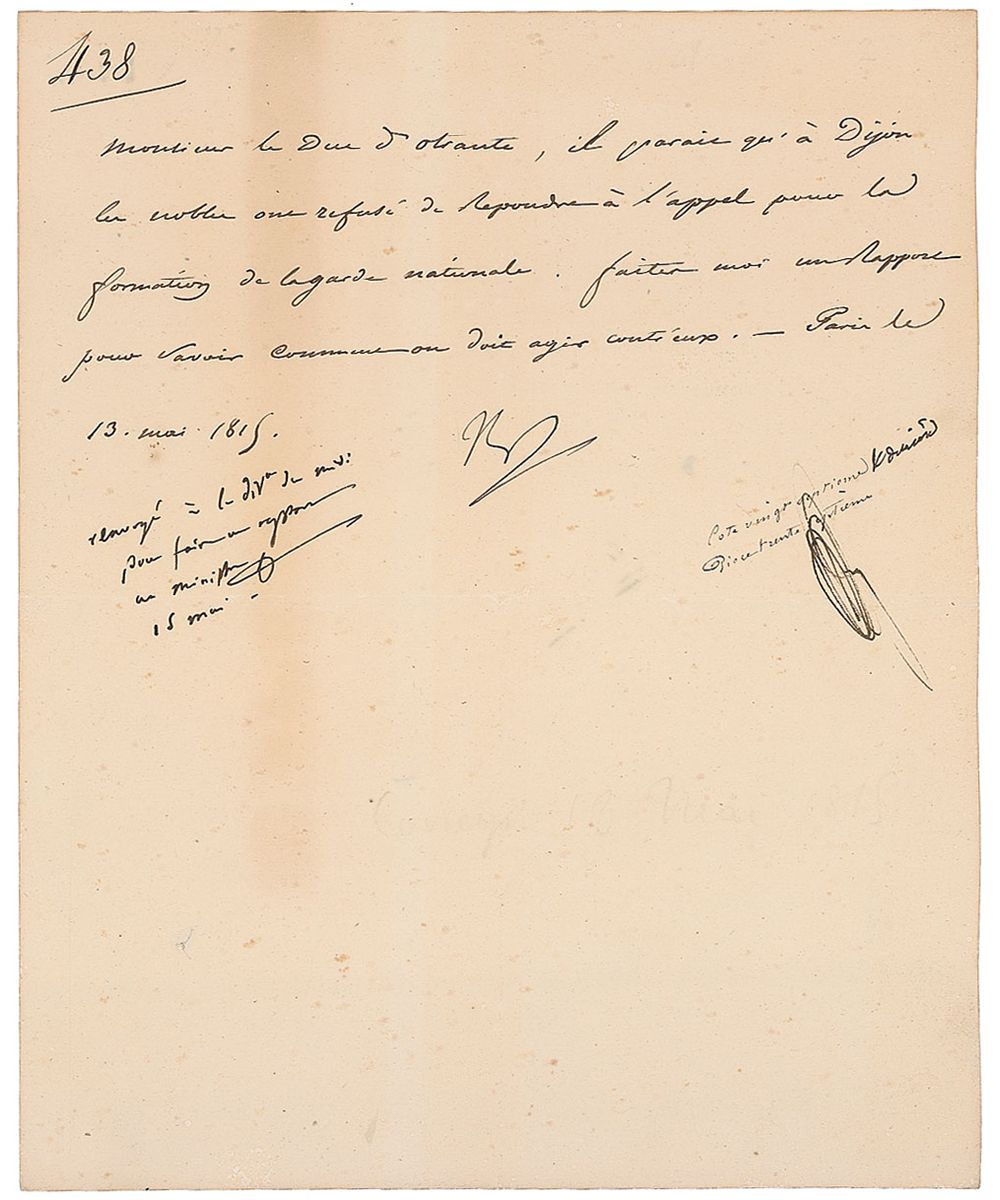 438
Monsieur le Duc d'otrante, il parait qu'à Dijon
les nobles ont refusé de Repondre à l'appel pour la
formation de la garde nationale. faites moi un Rapport
pour savoir comment on doit agir contr'eux. — Paris le
13. mai 1815.
Np
renvoyé à la div.on du midi
pour faire un rapport
au ministre
15 mai -
Cote vingt septieme division
Piece trente septième